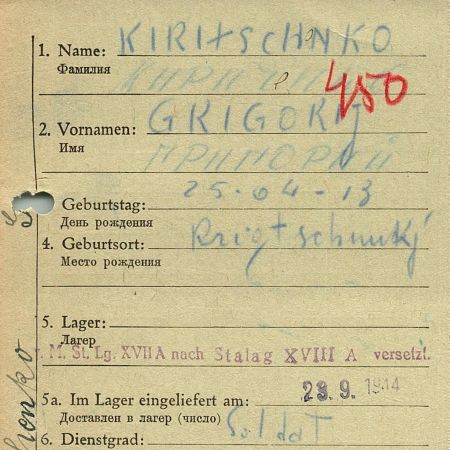 1. Name: KIRITSCHNKO
Фамилия
450
2. Vornamen: GRIGORIJ
Имя ГРИГОРИЙ
Geburtstag: 25.04-13
День рождения
4. Geburtsort:
Место рождения
5. Lager:
Лагерь
M. St. Lg. XVII A nach Stalag XVIII A versetzt.
23. 9. 1944
5a. Im Lager eingeliefert am:
Доставлен в лагерь (число)
6. Dienstgrad: Soldat